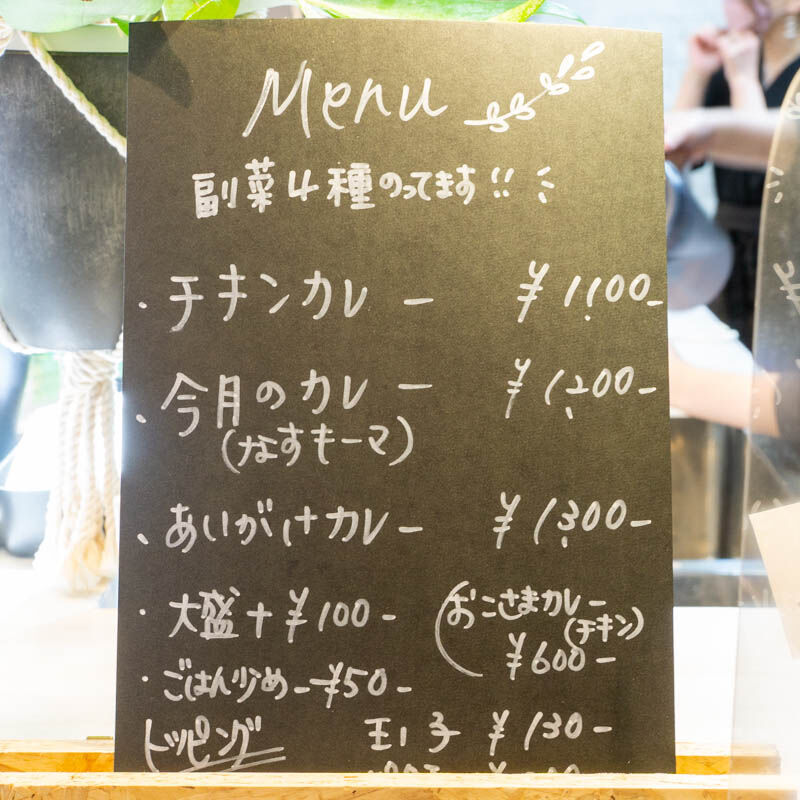 Menu
副菜4種のってます!!
・チキンカレー ¥1,100-
・今月のカレー ¥1,200-
(なすキーマ)
・あいがけカレー ¥1,300-
・大盛+¥100-
(おこさまカレー
(チキン)
¥600-
・ごはん少め-¥50-
トッピング 玉子 ¥130-